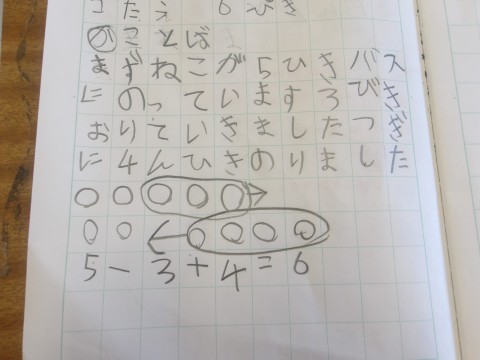 こたえ 6ぴき
ことば
まずねこが5ひきバス
にのっています3びき
おりていきましたつぎ
に4んひきのりました
5－3＋4＝6